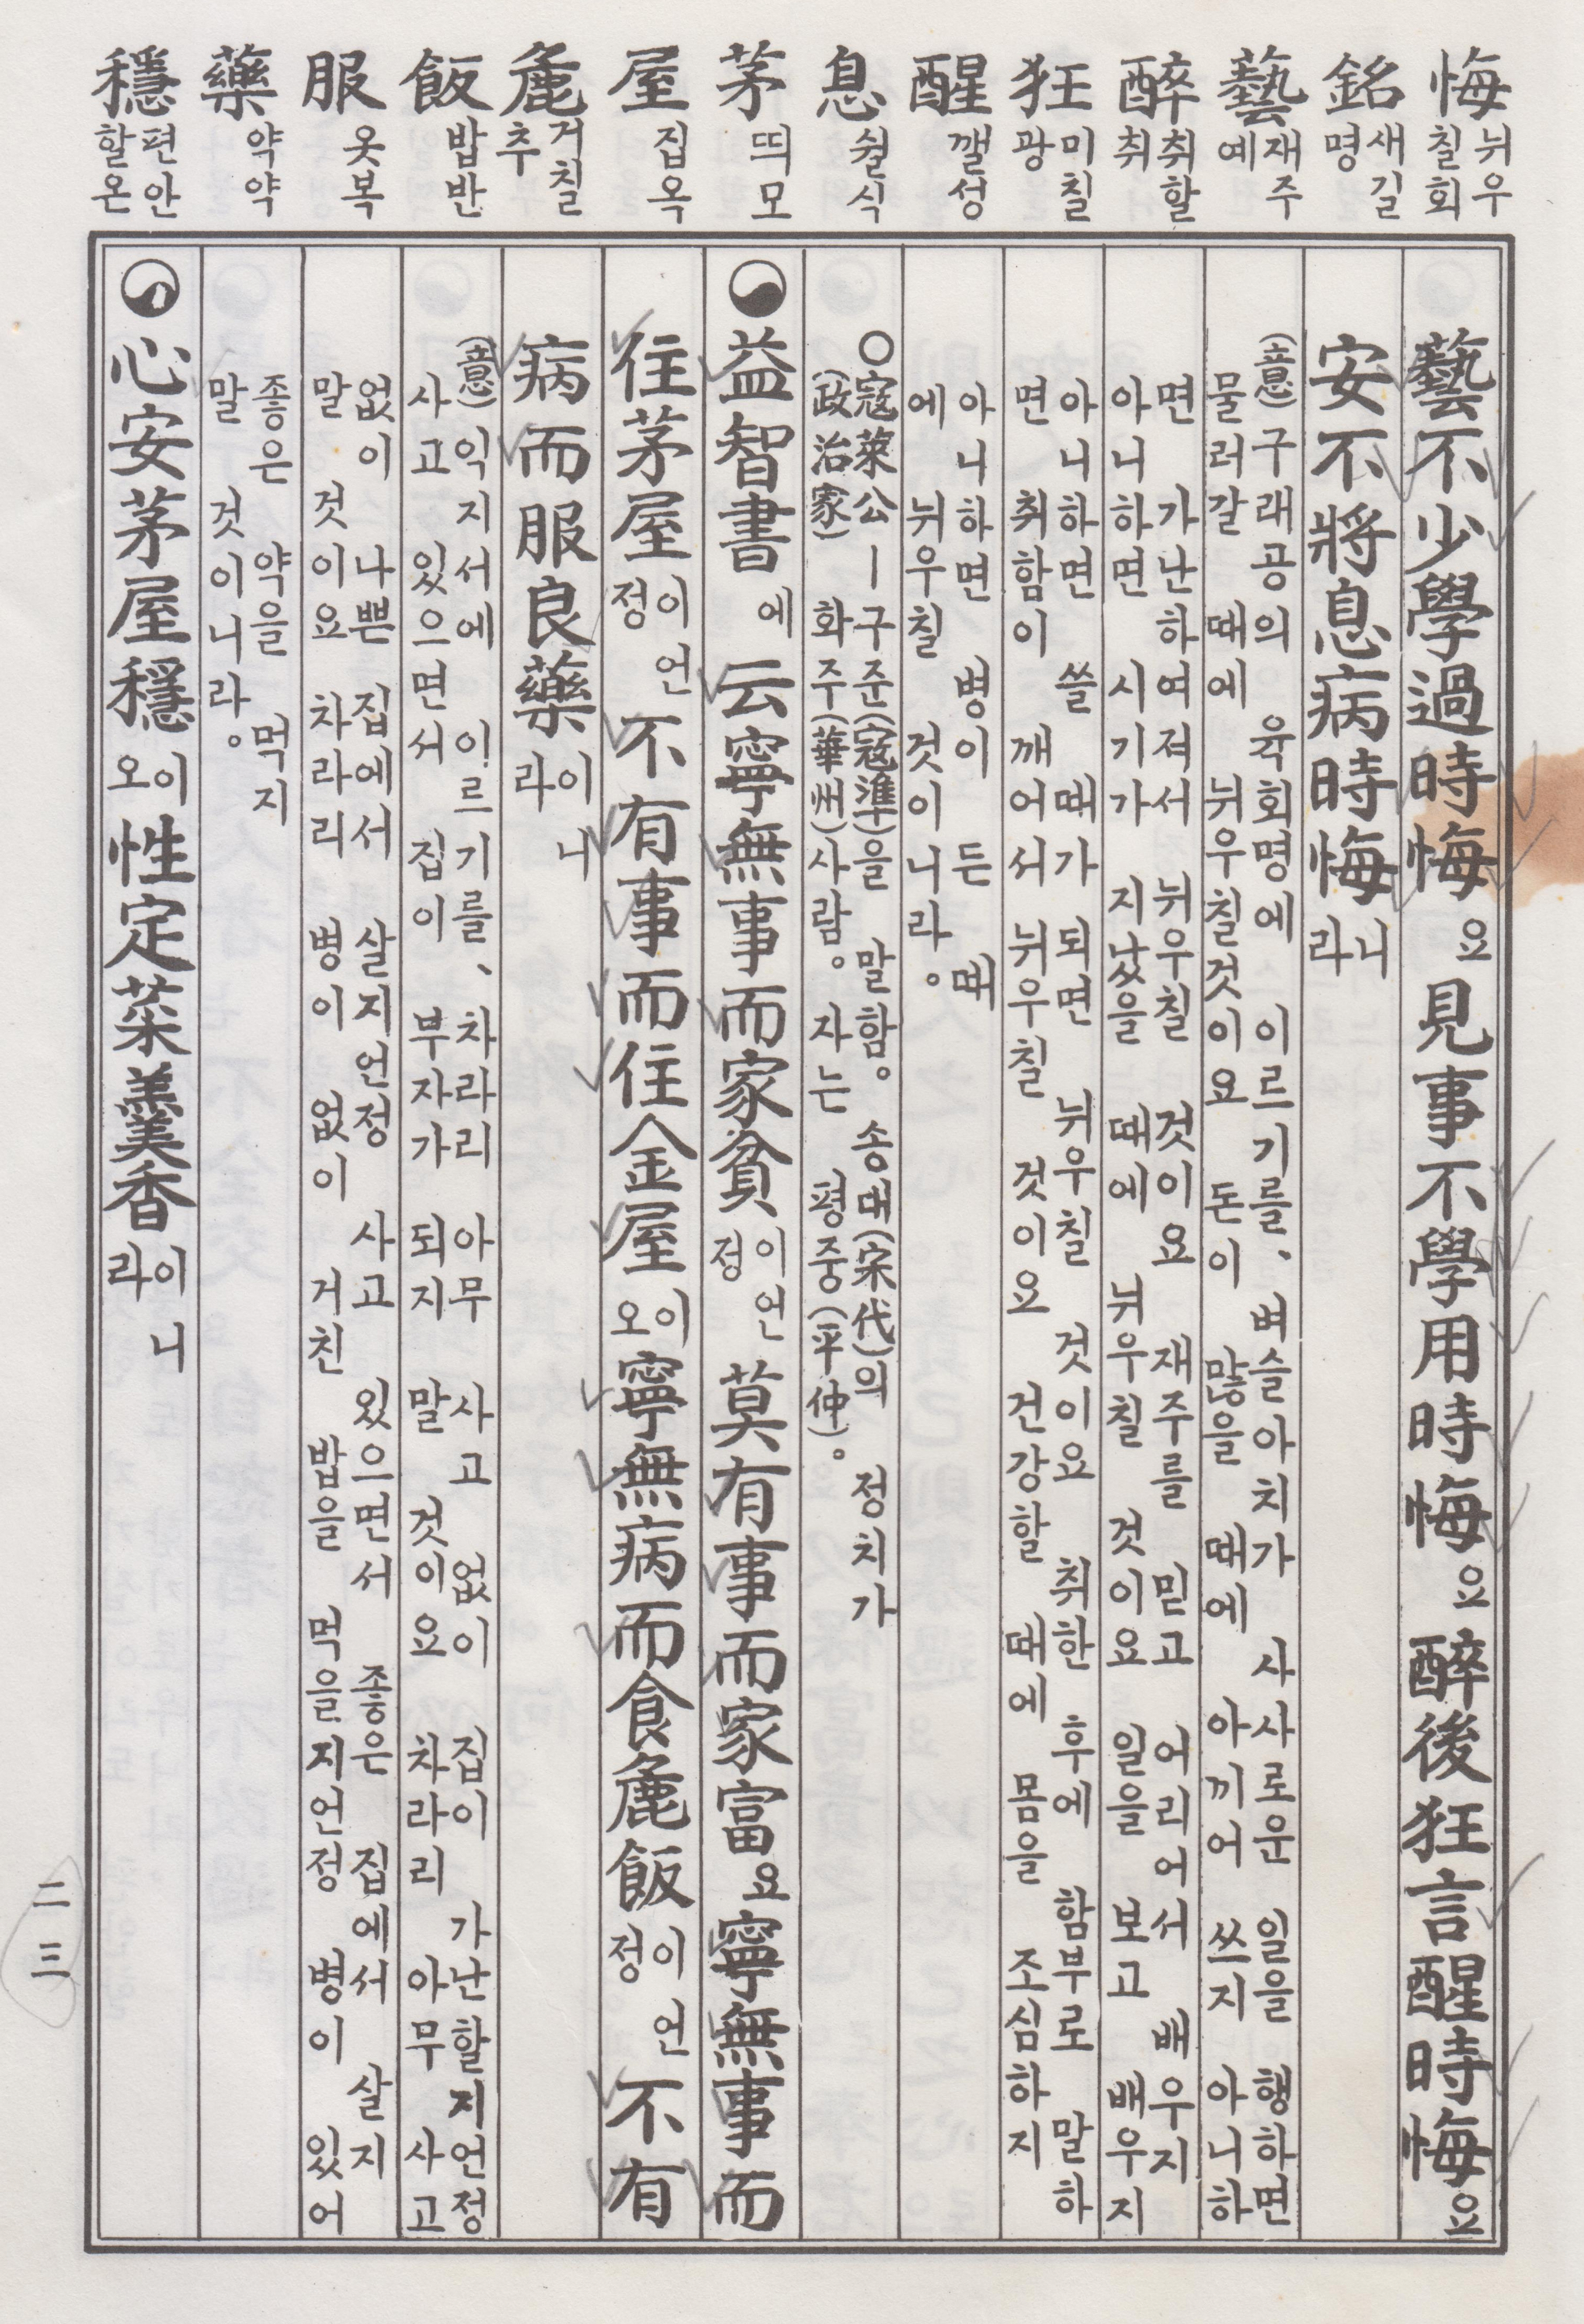 悔 뉘우칠 회
銘 새길 명
藝 재주 예
醉 취할 취
狂 미칠 광
醒 깰 성
息 쉴 식
茅 띄 모
屋 집 옥
麁 거칠 추
飯 밥 반
服 옷 복
藥 약 약
穩 편안할 온
藝不少學過時悔요 見事不學用時悔요 醉後狂言醒時悔요
安不將息病時悔니라
(意) 구래공의 육회명에 이르기를、벼슬아치가 사사로운 일을 행하면
물러갈 때에 뉘우칠것이요 돈이 많을 때에 아끼어 쓰지 아니하
면 가난하여져서 뉘우칠 것이요 재주를 믿고 어리어서 배우지
아니하면 시기가 지났을 때에 뉘우칠 것이요 일을 보고 배우지
아니하면 쓸 때가 되면 뉘우칠 것이요 취한 후에 함부로 말하
면 취함이 깨어서 뉘우칠 것이요 건강할 때에 몸을 조심하지
아니하면 병이 든 때
에 뉘우칠 것이니라。
○寇萊公ㅣ구준(寇準)을 말함。송대(宋代)의 정치가
(政治家) 화주(華州)사람。자는 평중(平仲)。
益智書에 云寧無事而家貧이언정 莫有事而家富요 寧無事而
住茅屋이언정 不有事而住金屋이오 寧無病而食麁飯이언정 不有
病而服良藥이니라
(意) 익지서에 이르기를、차라리 아무 사고 없이 집이 가난할지언정
사고 있으면서 집이 부자가 되지 말 것이요 차라리 아무 사고
없이 나쁜 집에서 살지언정 사고 있으면서 좋은 집에서 살지
말 것이요 차라리 병이 없이 거친 밥을 먹을지언정 병이 있어
좋은 약을 먹지
말 것이니라。
心安茅屋穩이오 性定菜羹香이니라
二三